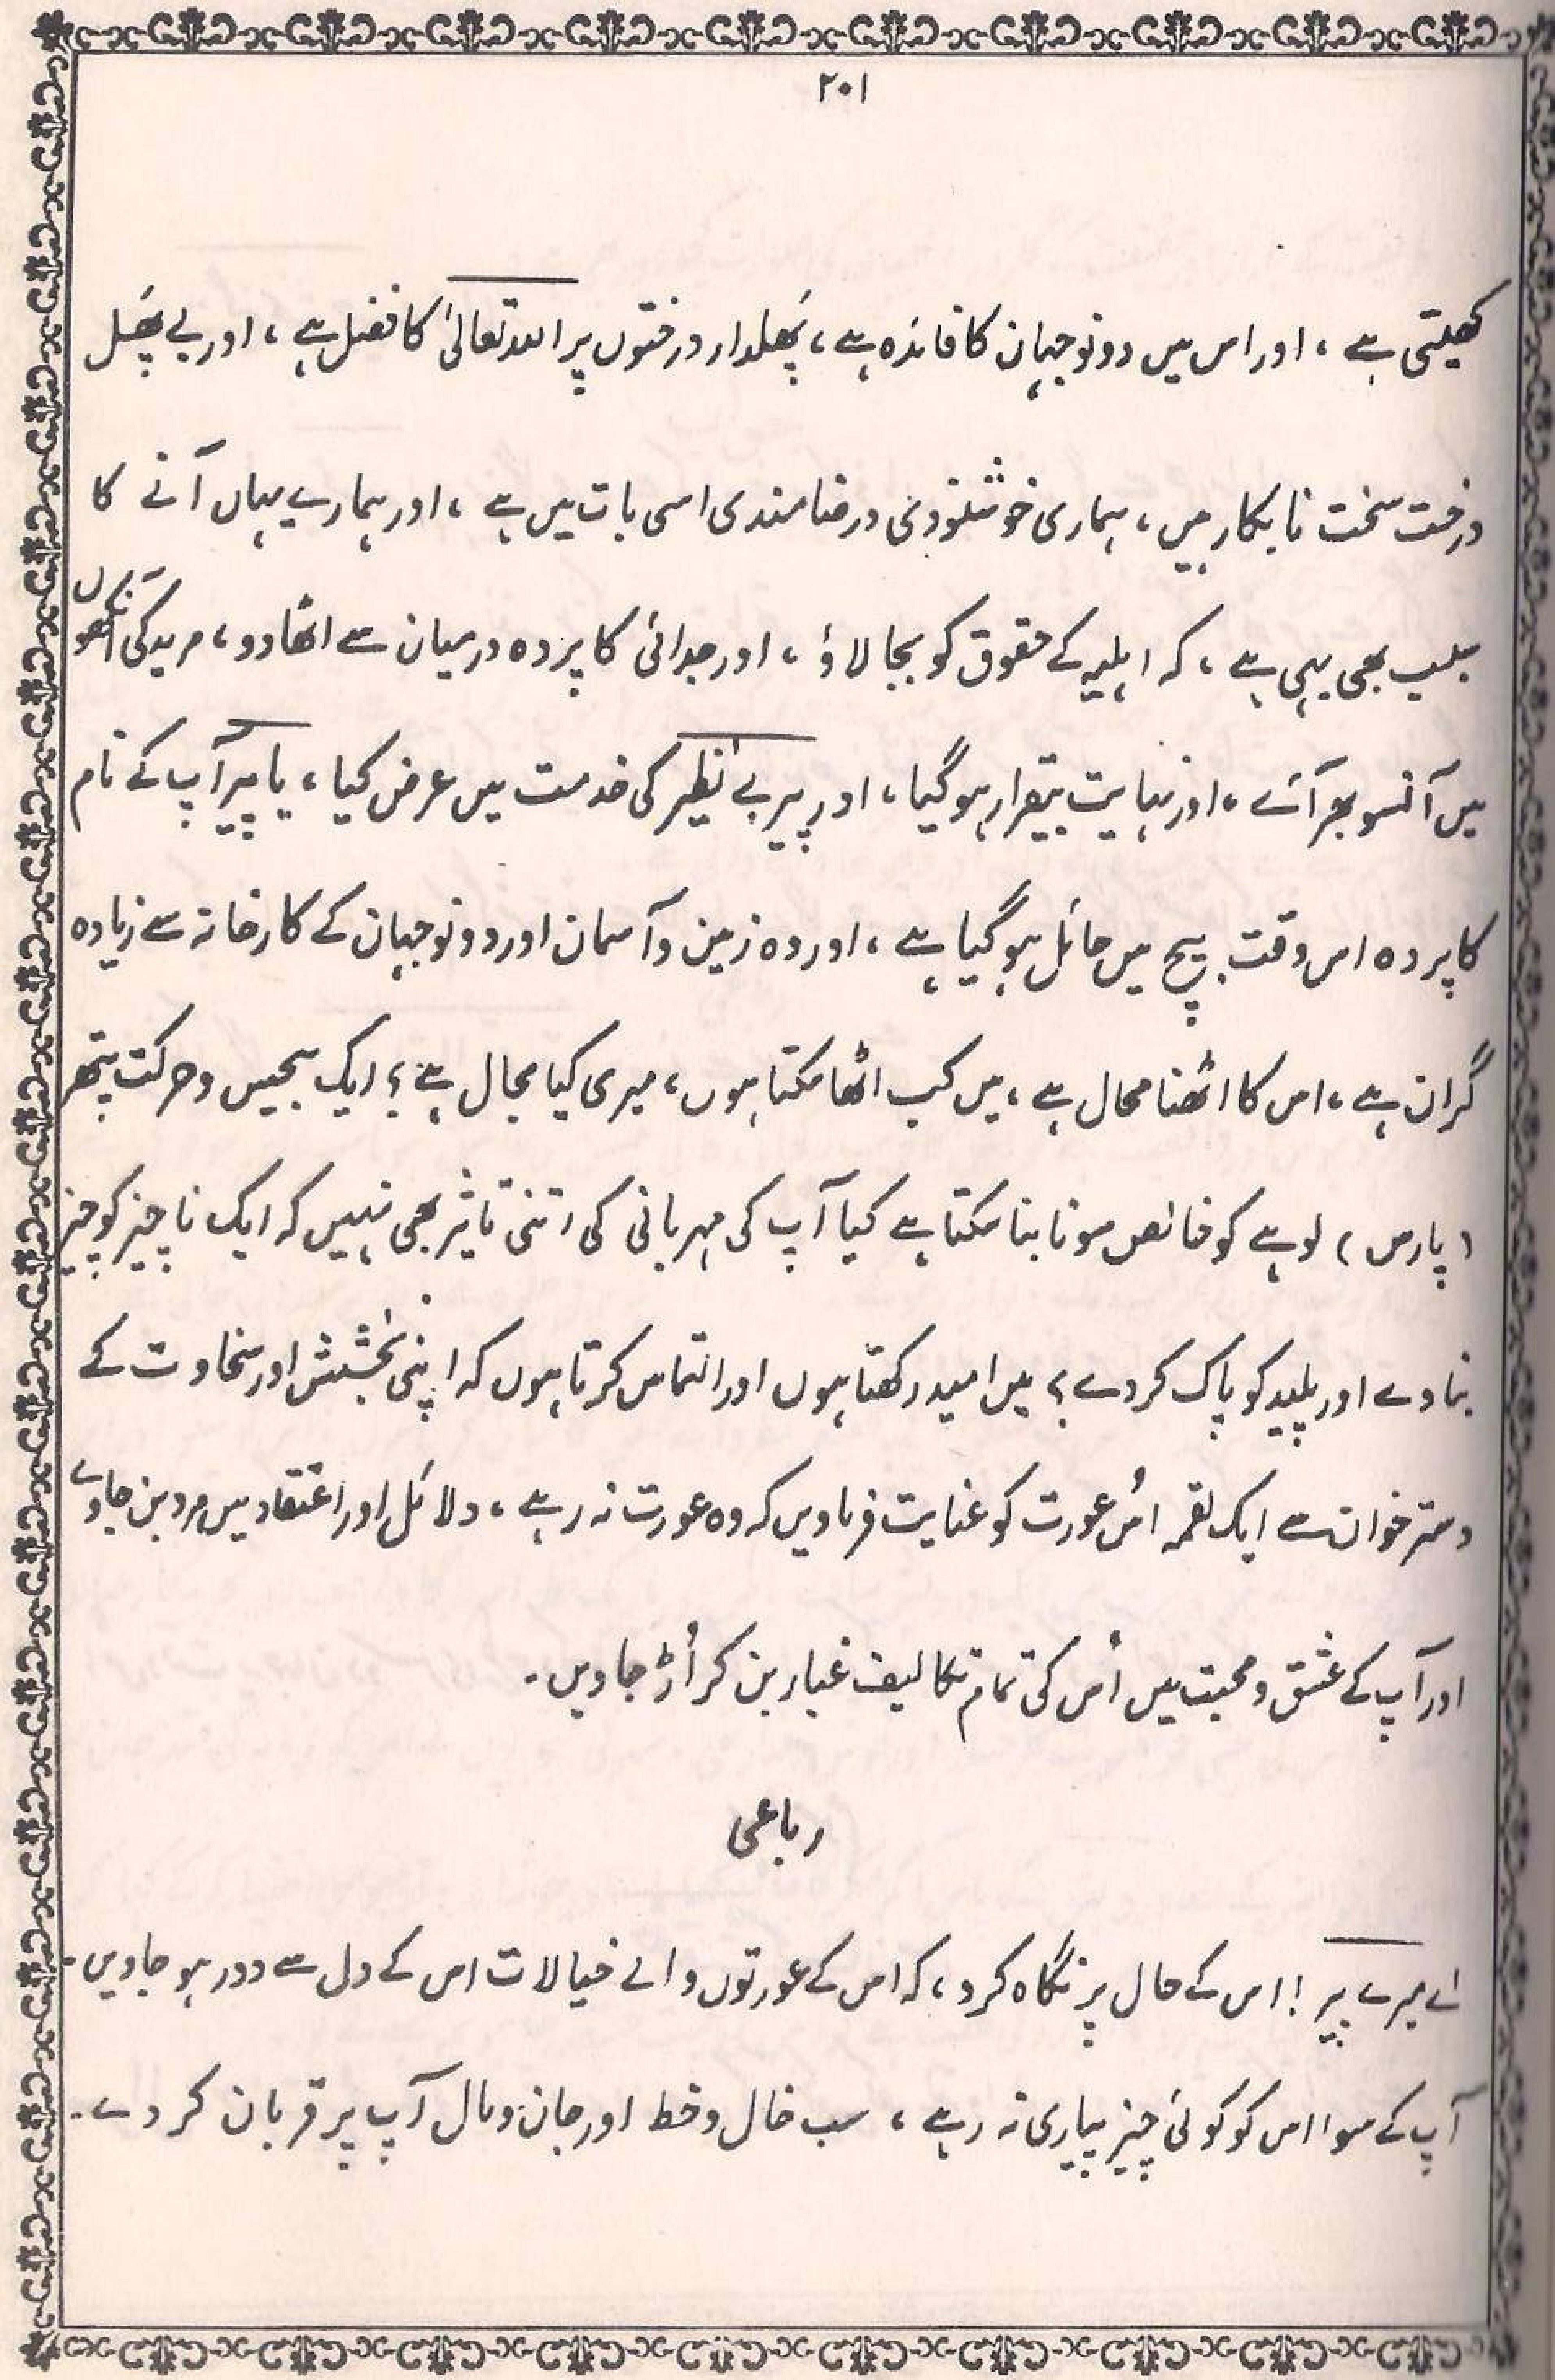 ۲۰۱
کھیتی ہے ، اور اس میں دونو جہان کا فائدہ ہے ، پَھلدار درختوں پر اللہ تعالیٰ کا فضل ہے ، اور بے پَھل
درخت سخت نابکار ہیں ، ہماری خوشنودی و رضامندی اسی بات میں ہے ، اور ہمارے یہاں آنے کا
سبب بھی یہی ہے ، کہ اہلیہ کے حقوق کو بجا لاؤ ، اور جدائی کا پردہ درمیان سے اٹھا دو ، مرید کی آنکھوں
میں آنسو بھر آئے ، اور نہایت بیقرار ہو گیا ، اور پیر بے نظیر کی خدمت میں عرض کیا ، یا پیر آپ کے نام
کا پردہ اس وقت بیچ میں حائل ہو گیا ہے ، اور وہ زمین و آسمان اور دونو جہان کے کارخانہ سے زیادہ
گران ہے ، اس کا اٹھنا محال ہے ، میں کب اٹھا سکتا ہوں ، میری کیا مجال ہے ؟ ایک بیحس و حرکت پتھر
( پارس ) لوہے کو خالص سونا بنا سکتا ہے کیا آپ کی مہربانی کی اتنی تاثیر بھی نہیں کہ ایک ناچیز کو چیز
بنا دے اور پلید کو پاک کر دے ؟ میں امید رکھتا ہوں اور التماس کرتا ہوں کہ اپنی بخشش اور سخاوت کے
دسترخوان سے ایک لقمہ اُس عورت کو عنایت فرماویں کہ وہ عورت نہ رہے ، دلائل اور اعتقاد میں مرد بن جاوے
اور آپ کے عشق و محبت میں اُس کی تمام تکالیف غبار بن کر اُڑ جاویں ۔
رباعی
اے میرے پیر ! اس کے حال پر نگاہ کرو ، کہ اس کے عورتوں والے خیالات اس کے دل سے دور ہو جاویں ۔
آپ کے سوا اس کو کوئی چیز پیاری نہ رہے ، سب خال و خط اور جان و مال آپ پر قربان کر دے ۔